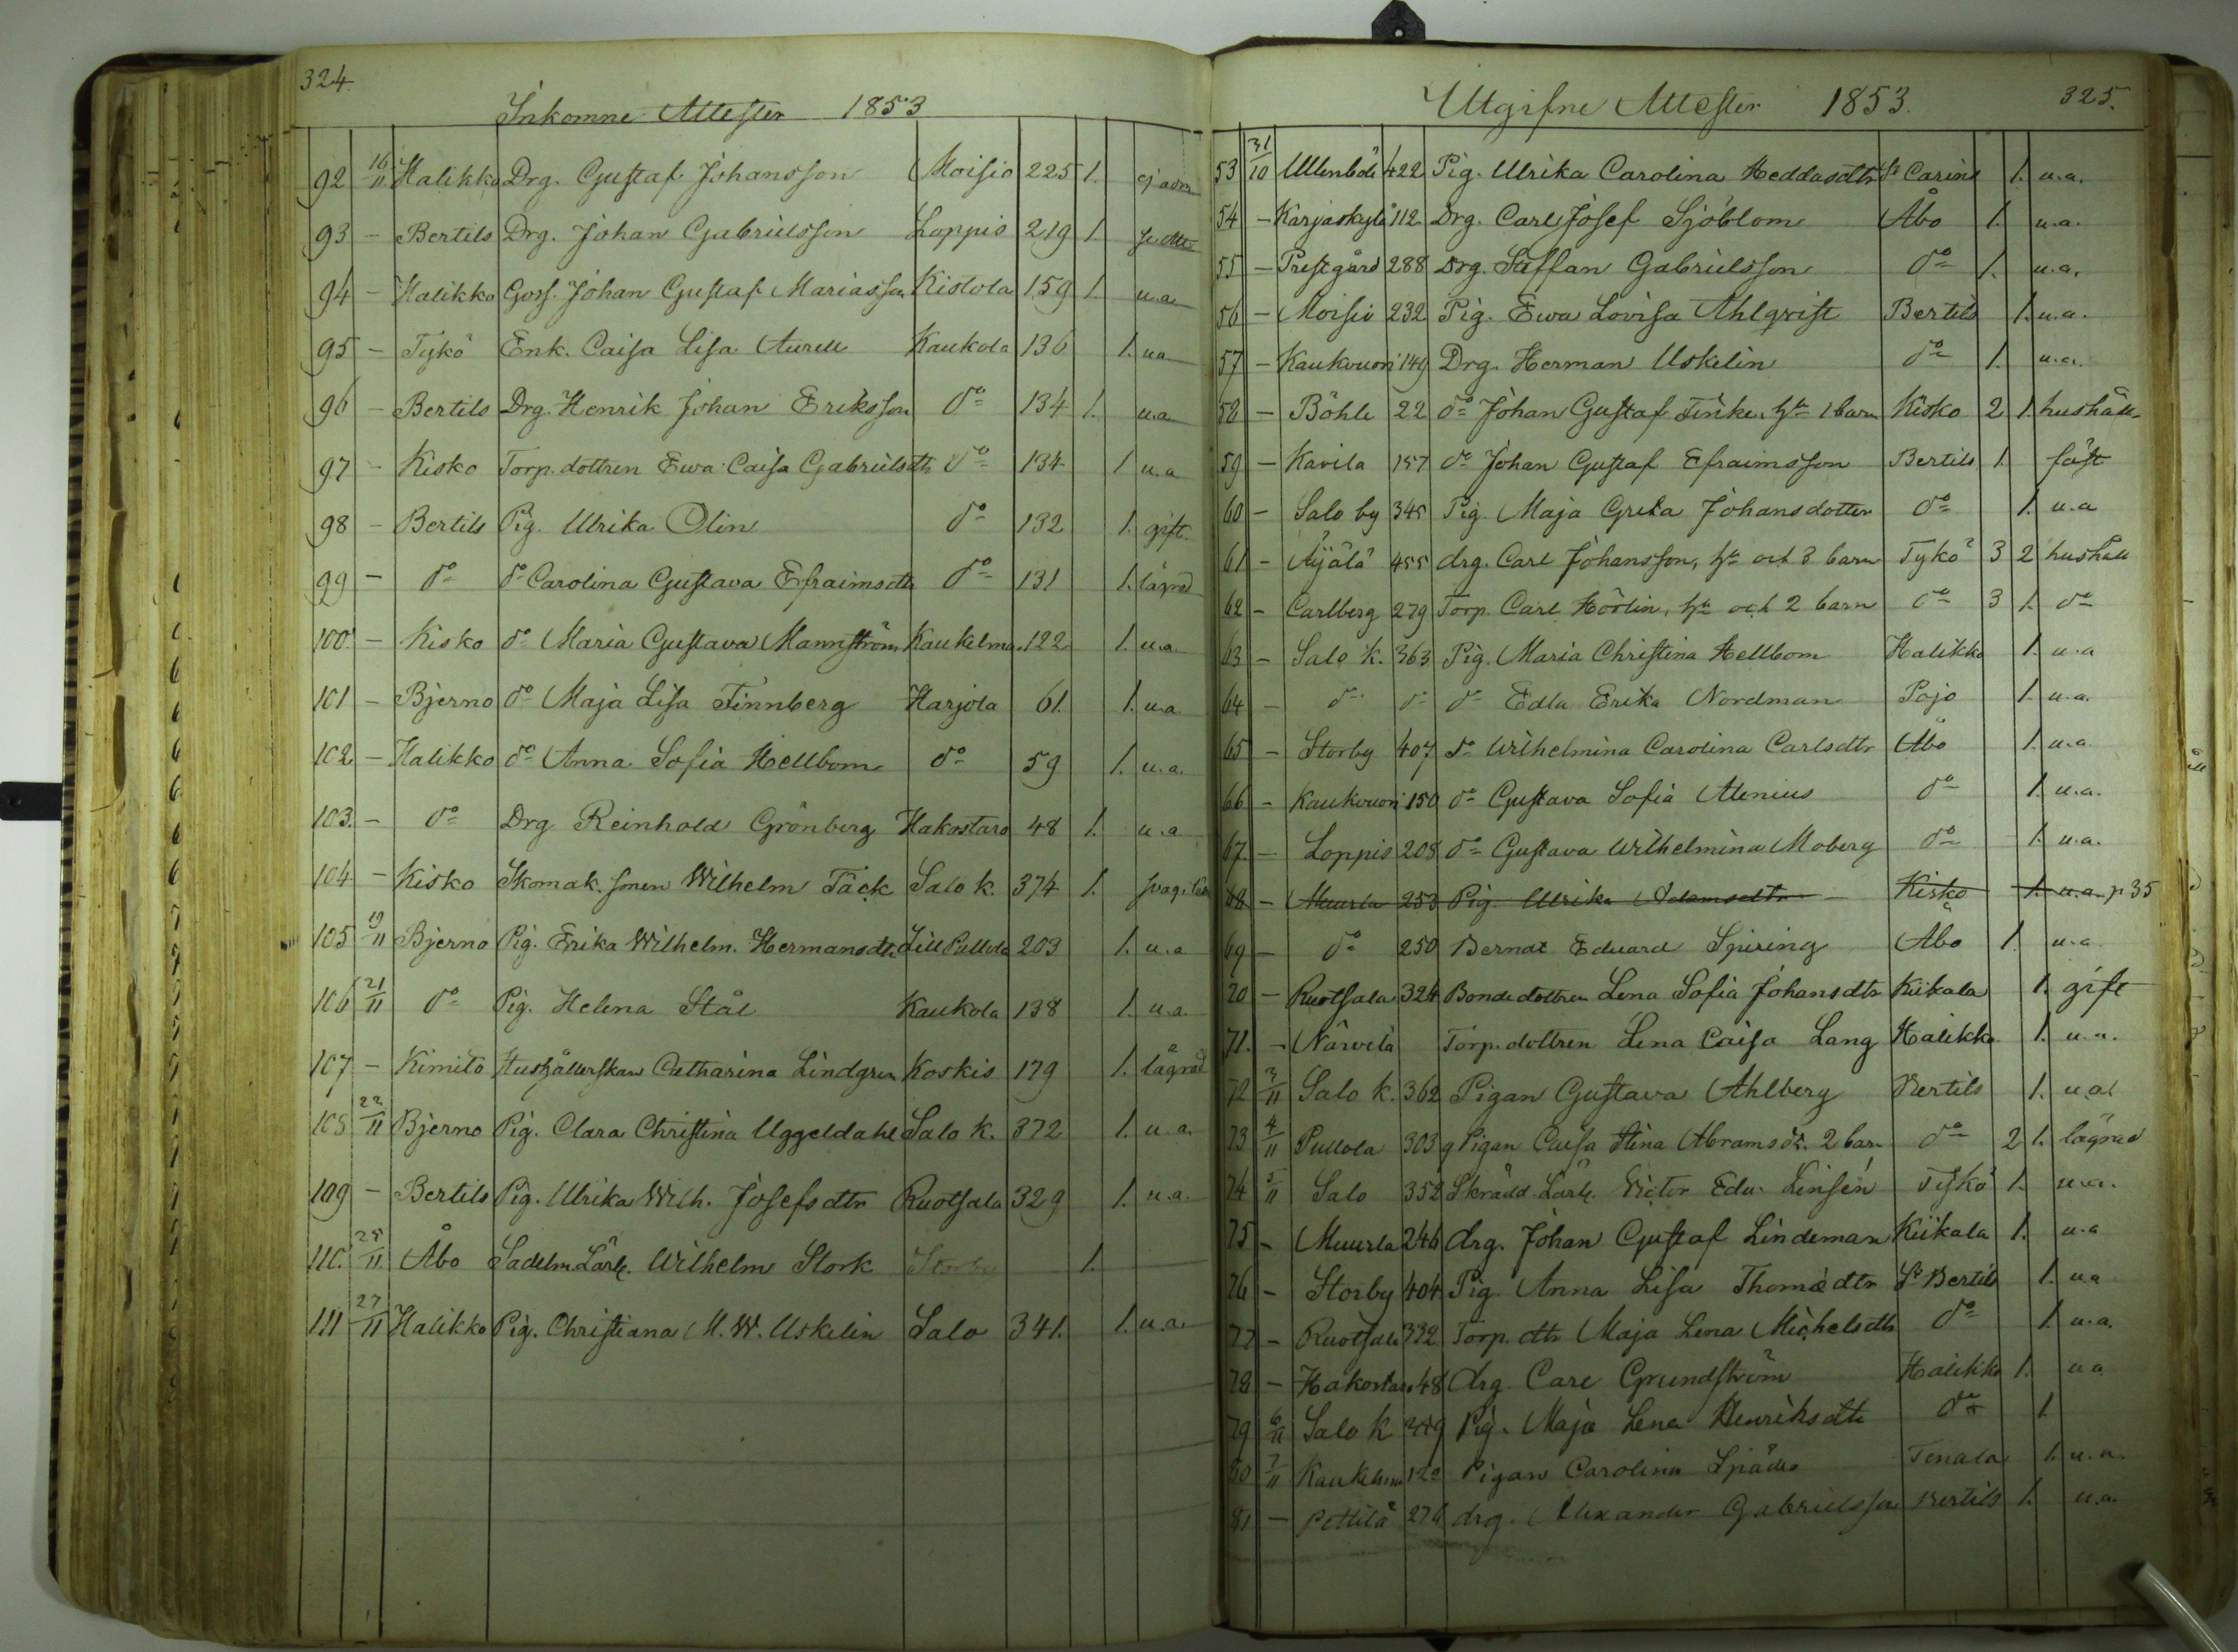 324.
Inkomne Attester 1853
92 16/11 Halikko Drg. Gustaf Johansson Moisio 225 1. ej adm
93 - Bertils Drg. Johan Gabrielsson Loppis 219 1.
94 - Halikko Goss. Johan Gustaf Mariasson Kistola 159 1. u.a
95 - Tykö Enk. Caisa Lisa Aurell Kaukola 136 1. u.a
96 - Bertils Drg. Henrik Johan Eriksson do 134 1. u.a
97 - Kisko Torp. dottren Ewa Caisa Gabrielsdtr do 134 1 u.a
98 - Bertils Pig. Ulrika Olin do 132 1. gift.
99 - do do Carolina Gustava Efraimsdtr do 131 1. lägrad
100. - Kisko do Maria Gustava Mannström Kaukelma. 122 1. u.a.
101 - Bjerno do Maja Lisa Finnberg Harjola 61. 1. u.a
102 - Halikko do Anna Sofia Hellbom do 59 1. u.a.
103. - do Drg Reinhold Grönberg Hakostaro 48 1. u.a
104 - Kisko Skomak. sonen Wilhelm Täck Salo k. 374 1.
105 19/11 Bjerno Pig. Erika Wilhelm. Hermansdtr Lill Pullola 203 1. u.a
106 21/11 do Pig. Helena Stål Kaukola 138 1. u.a.
107 - Kimito Hushållerskan Catharina Lindgren Koskis 179 1. lägrad
108 22/11 Bjerno Pig. Clara Christina Uggeldahl Salo k. 372 1. u.a.
109 - Bertils Pig. Ulrika Wilh. Josefsdtr Ruotsala 329 1. u.a.
110. 25/11 Åbo Sadelm. Lärl. Wilhelm Stork Storby 1.
111 27/11 Halikko Pig. Christiana M. W. Uskelin Salo 341. 1. u.a.
Utgifne Attester 1853. 325.
53 31/10 Ullenböle 422 Pig. Ulrika Carolina Heddasdtr St Carins 1. u.a.
54 - Karjaskylä 112 Drg. Carl Josef Sjöblom Åbo 1. u.a.
55 - Prestgård 288 Drg. Staffan Gabrielsson do 1. u.a.
56 - Moisio 232 Pig. Ewa Lovisa Ahlqvist Bertils 1. u.a.
57 - Kaukvuori 149 Drg. Herman Uskelin do 1. u.a.
58 - Böhle 22 do Johan Gustaf Finke. hu 1 barn Kisko 2 1. hushåll
59 - Kavila 157 do Johan Gustaf Efraimsson Bertils 1. fäst
60 - Salo by 345 Pig. Maja Greta Johansdotter do 1. u.a
61 - Äijälä 455 drg. Carl Johansson, hu och 3 barn Tykö 3 2 hushåll
62 - Carlberg 279 Torp. Carl Hörlin, hu och 2 barn do 3 1. do
63 - Salo k. 363 Pig. Maria Christina Hellbom Halikko 1. u.a
64 - do do do Edla Erika Nordman Pojo 1. u.a.
65 - Storby 407 do Wilhelmina Carolina Carlsdtr Åbo 1. u.a.
66 - Kaukvuori 150 do Gustava Sofia Alenius do 1. u.a.
67. - Loppis 208 do Gustava Wilhelmina Moberg do 1. u.a.
68 - Muurla 253 Pig. Ulrika Adamsdtr Kisko 1. u.a. p 35
69 - do 250 Berndt Eduard Spiring Åbo 1. u.a
70 - Ruotsala 324 Bondedottren Lena Sofia Johansdtr Kiikala 1. gift
71. - Närvelä Torp. dottren Lena Caisa Lang Halikko 1. u.a.
72 3/11 Salo k. 362 Pigan Gustava Ahlberg Bertils 1. u.a
73 4/11 Pullola 303 g Pigan Caisa Stina Abramsdr. 2 barn do 2 1. lägrad
74 5/11 Salo 352 Skrädd. Lärl. Victor Edu. Linsén Tykö 1. u.a.
75 - Muurla 246 drg. Johan Gustaf Lindeman Kiikala 1. u.a
76 - Storby 404 Pig. Anna Lisa Thomædtr St Bertils 1. u.a
77 - Ruotsala 332 Torp. dtr Maja Lena Michelsdtr do 1. u.a.
78 - Hakostaro 48 drg. Carl Grundström Halikko 1. u.a
79 6/11 Salo k Pig. Maja Lena Henriksdtr do 1
80 7/11 Kaukelma 122 Pigan Carolina Tenala 1. u.a.
81 - Pettilä 276 drg. Alexander Gabrielsson Bertils 1. u.a.